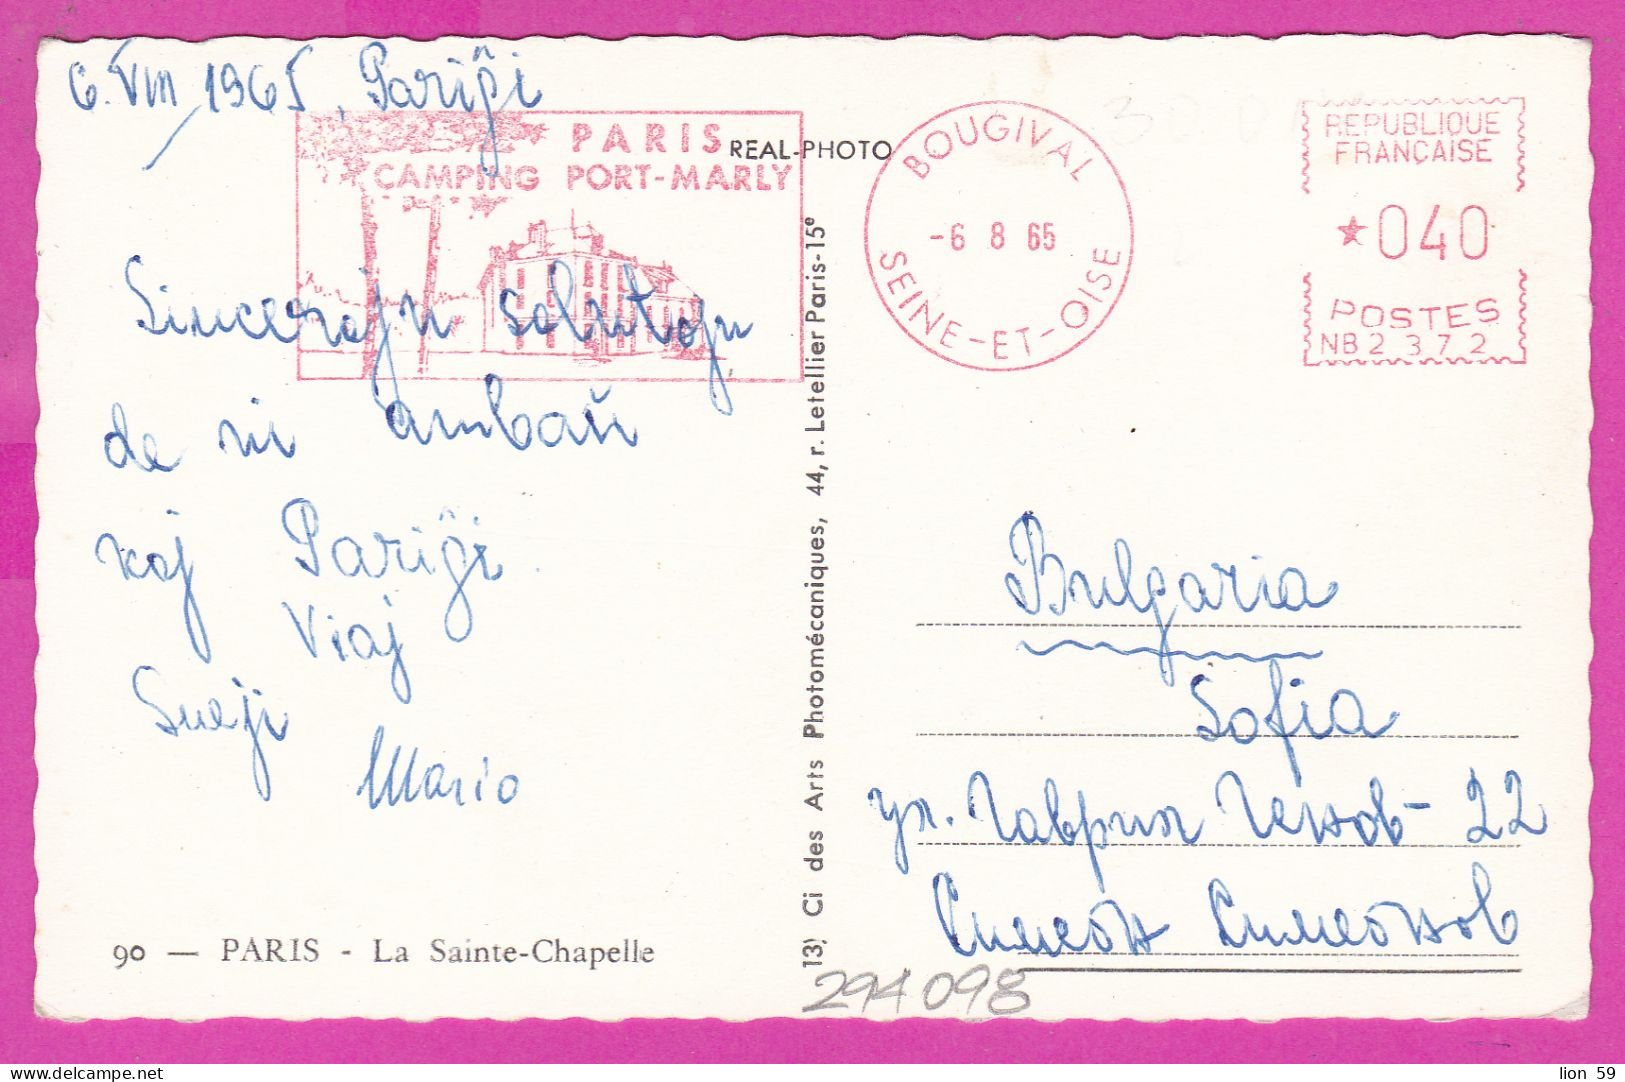 6. VIII 1965, Pariĝi
PARIS
CAMPING PORT-MARLY
REAL-PHOTO
BOUGIVAL
-6 8 65
SEINE-ET-OISE
REPUBLIQUE
FRANÇAISE
★040
POSTES
NB 2 372
Sincerajn salutojn
de ni ambaŭ
kaj Pariĝi
Viaj
Mario
13) Ci des Arts Photomécaniques, 44, r. Letellier Paris-15e
Bulgaria
Sofia
ул. Гаврил Генов - 22
Симеон Симеонов
90 — PARIS - La Sainte-Chapelle
294098
delcampe.net
lion 59